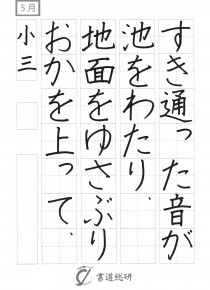 5月
すき通った音が
池をわたり、
地面をゆさぶり
おかを上って、
小三
書道総研